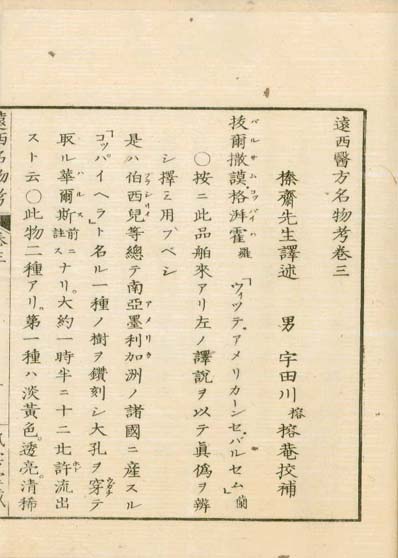 遠西醫方名物考卷三
榛齋先生譯述　男　宇田川榕榕菴挍補
拔爾撒謨格湃霍 羅「ウィッテ、アメリカーンセ、バルセム」蘭
バルサム コッパイハ
○按ニ此品舶來アリ左ノ譯説ヲ以テ眞僞ヲ辨
シ擇ミ用フベシ
是ハ伯西兒等總テ南亞墨利加洲ノ諸國ニ産スル
ブラシリイ アメリカ
「コッパイヘラ」ト名ル一種ノ樹ヲ鑽刻シ大孔ヲ穿テ
ウガチ
取ル華爾斯前ニ註スナリ。大約一時半ニ十二比許流出
ハルス ホト
スト云○此物二種アリ。第一種ハ淡黃色。透亮。清稀
遠西名物考 卷三